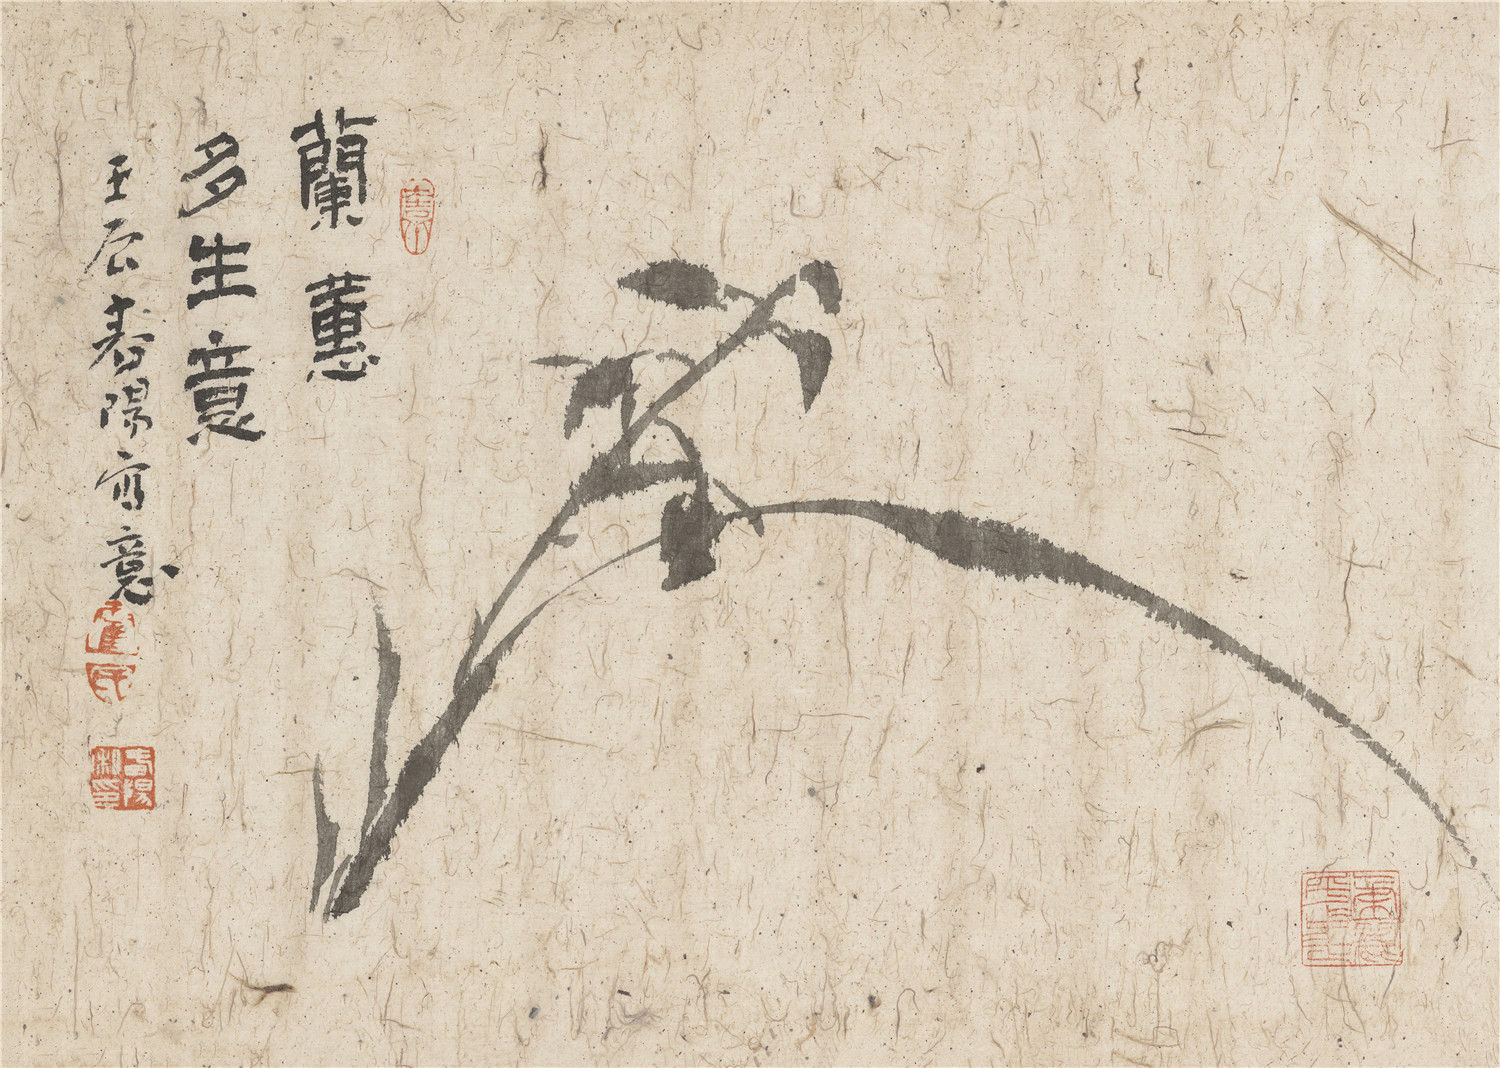 蘭蕙
多生意
壬辰春陽寫意